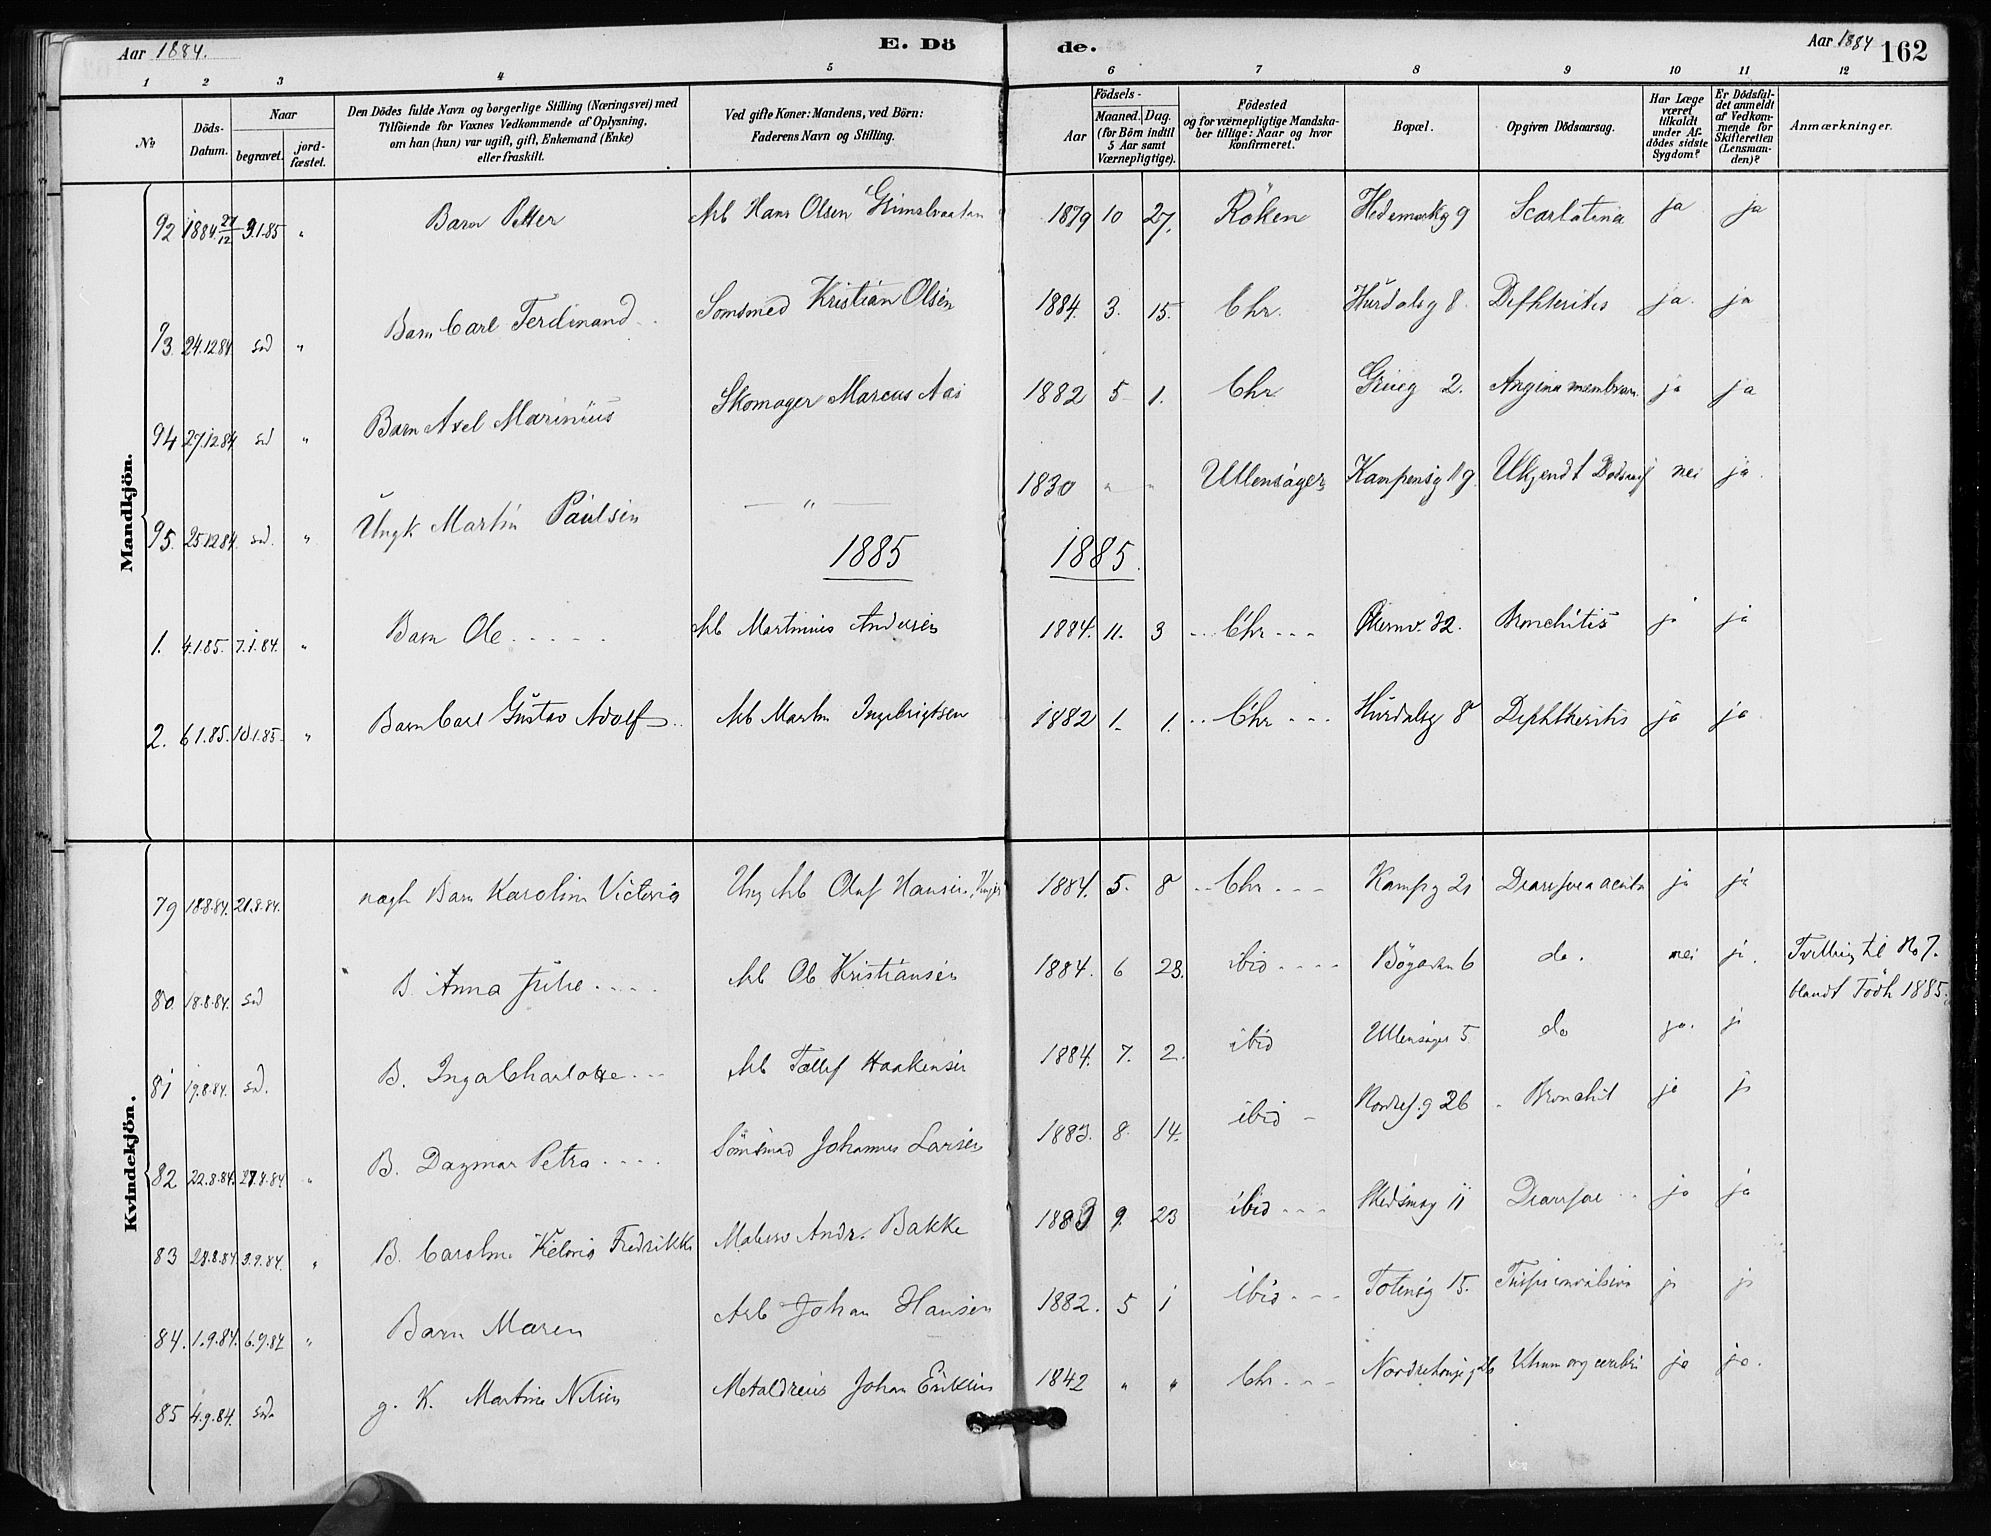 Aar 1884.
E. Dö
de.
Aar 1884
162
1 2 3 4 5 6 7 8 9 10 11 12
No
Döds-Datum.
Naar
begravet.
jord-fæstet.
Den Dödes fulde Navn og borgerlige Stilling (Næringsvei) med
Tilföiende for Voxnes Vedkommende af Oplysning,
om han (hun) var ugift, gift, Enkemand (Enke)
eller fraskilt.
Ved gifte Koner: Mandens, ved Börn:
Faderens Navn og Stilling.
Födsels-
Aar
Maaned. Dag.
(for Börn indtil
5 Aar samt
Værnepligtige).
Födested
og for værnepligtige Mandska-
ber tillige: Naar og hvor
konfirmeret.
Bopæl.
Opgiven Dödsaarsag.
Har Læge
været
tilkaldt
under Af-
dödes sidste
Sygdom?
Er Dödsfal-
det anmeldt
af Vedkom-
mende for
Skifteretten
(Lensman-
den)?
Anmærkninger.
Mandkjön.
92 1884 27/12 3.1.85 " Barn Petter Arb Hans Olsen 1879 10 27. Röken Hedemarkg 9 Scarlatina ja ja
93. 24.12.84. sd " Barn Carl Ferdinand Sömsmed Kristian Olsen 1884. 3. 15. Chr. Hurdalsg 8. Difhteritis ja ja
94 27.12.84 sd " Barn Axel Marinius Skomager Marcus Aas 1882 5 1. Chr. Grueg 2. Angina membran. ja ja
95. 25.12.84. sd. " Ungk Martin Paulsen — " — 1830 " " Ullensager Kampensg 19. Ukjendt nei ja.
1885 1885.
1. 4.1.85. 7.1.84. " Barn Ole Arb Martinius Andersen 1884. 11. 3 Chr Økernv. 32. Bronchitis ja ja
2. 6.1.85. 10.1.85. " Barn Carl Gustav Adolf Arb Martin Ingebrigtsen 1882 1. 1. Chr Hurdalsg 8 Diphtheritis ja ja
Kvindekjön.
79 18.8.84. 21.8.84. uægte Barn Karoline Victoria Ung Arb Oluf Hansen 1884. 5. 8 Chr Kampg 21 Diarrhoea acuta ja ja
80. 18.8.84. sd B. Anna Julie Arb Ole Kristiansen 1884. 6 23. ibid Bögaden 6 do. nei ja. Tvilling til No 7.
blandt Födte 1885.
81 19.8.84. sd. B. Inga Charlotte Arb Tollef Haakensen 1884. 7. 2. ibid Ullensager 5 do ja. ja
82 22.8.84. 27.8.84 " B. Dagmar Petra Sömsmed Johannes Larsen 1883. 8. 14. ibid g 26 Bronchit ja ja
83 28.8.84 3.9.84. " B. Caroline Victoria Fredrikke Andr. Bakke 1883 9. 23 ibid Hedemg 11 Diarrhoe ja ja
84. 1.9.84. 6.9.84 " Barn Maren Arb Johan Hansen 1882. 5 1 ibid Totensg 15. Tussis convulsiva ja ja
85 4.9.84. sd. g. K. Martine Nilsen Metaldreier Johan Eriksen 1842 " " Chr. ja ja.